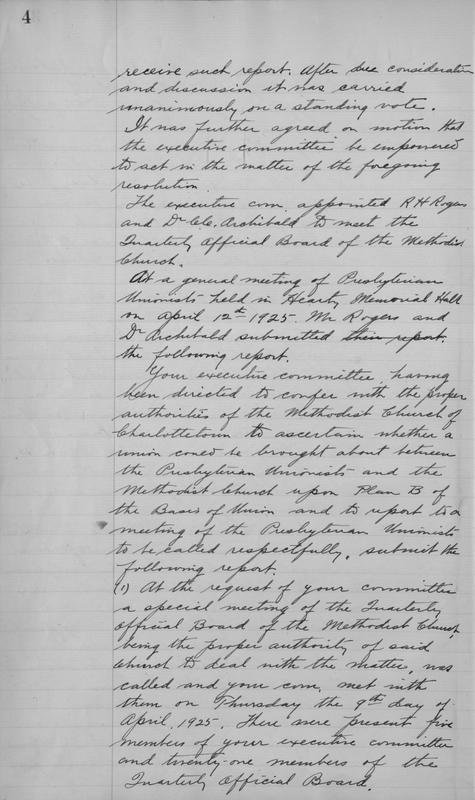 4
receive such report. After due consideration
and discussion it was carried
unanimously on a standing vote.
It was further agreed on motion that
the executive committee be empowered
to act in the matter of the foregoing
resolution.
The executive com. appointed R H Rogers
and Dr Archibald to meet the
Quarterly Official Board of the Methodist
Church.
At a general meeting of Presbyterian
Unionists held in Heartz Memorial Hall
on April 12th 1925. Mr Rogers and
Dr Archibald submitted their report.
the following report.
Your executive committee, having
been directed to confer with the proper
authorities of the Methodist Church of
Charlottetown to ascertain whether a
union could be brought about between
the Presbyterian Unionists and the
Methodist Church upon Plan B of
the Basis of Union and to report to a
meeting of the Presbyterian Unionists
to be called respectfully, submit the
following report.
(1) At the request of your committee
a special meeting of the Quarterly
Official Board of the Methodist Church,
being the proper authority of said
Church to deal with the matter, was
called and your com. met with
them on Thursday the 9th day of
April, 1925. There were present five
members of your executive committee
and twenty-one members of the
Quarterly Official Board.